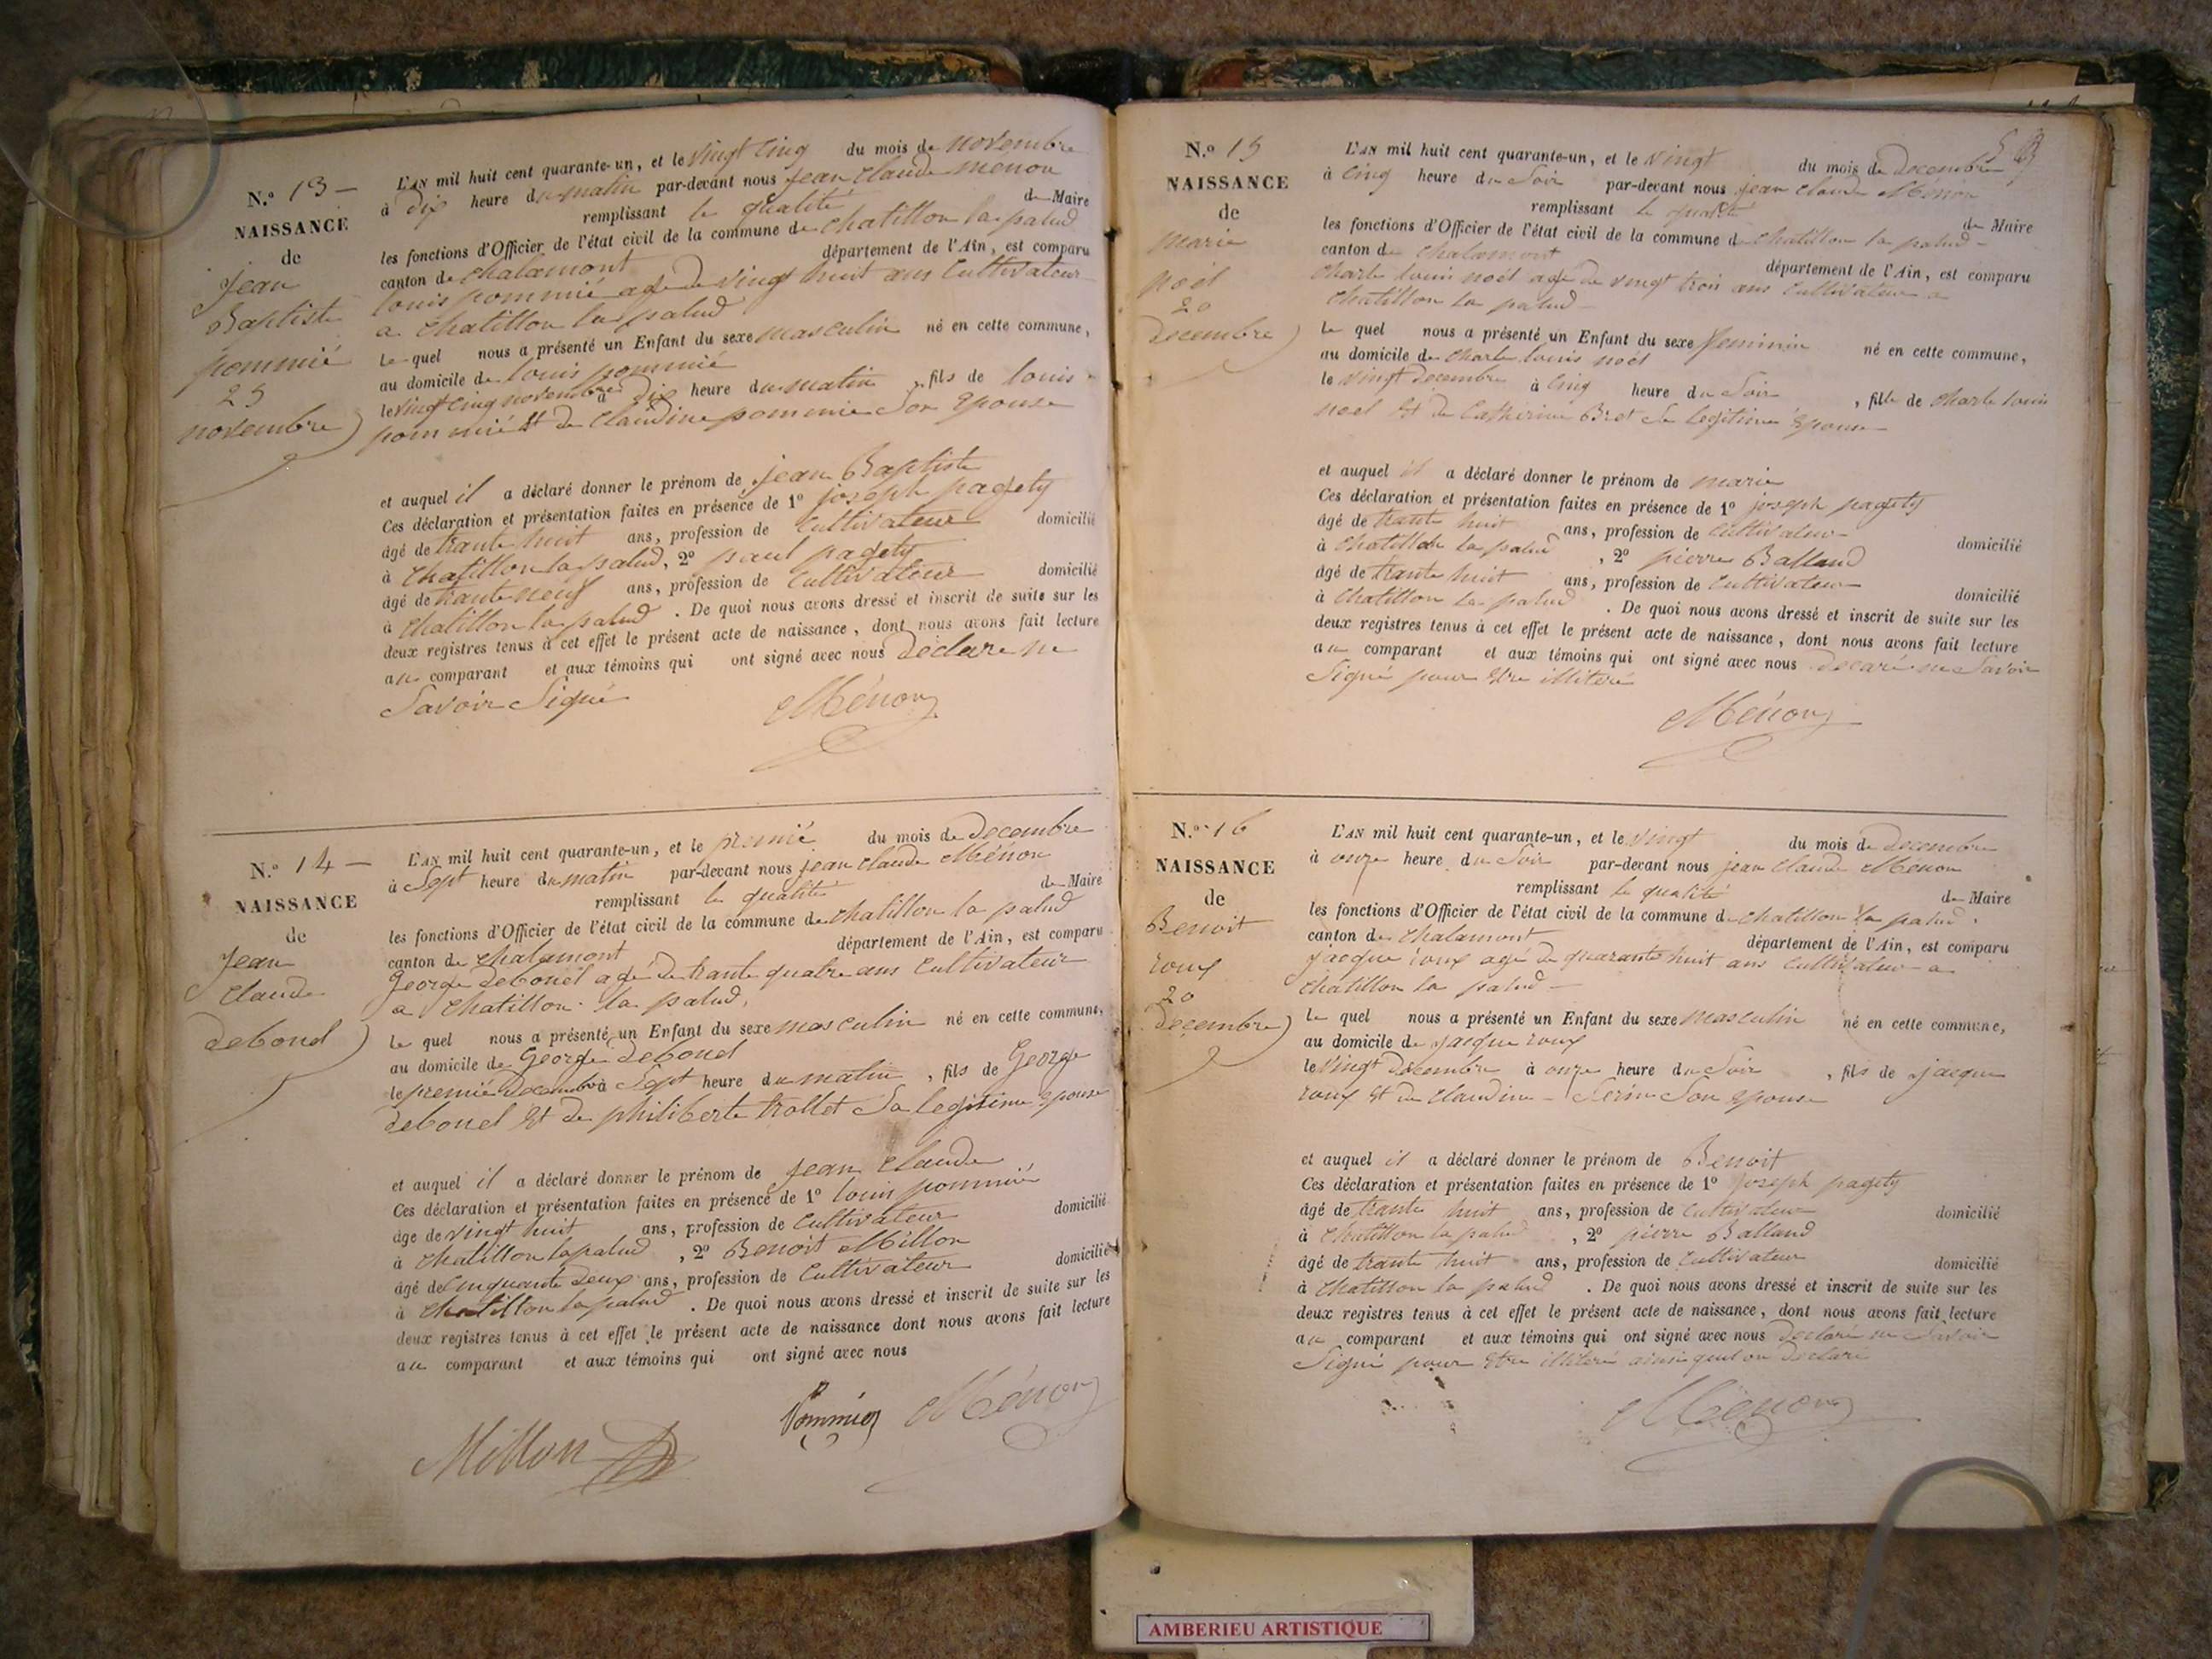 N.º 13 –
NAISSANCE
de
jean
Baptiste
pommié
25
novembre
L'AN mil huit cent quarante-un, et le vingt cinq du mois de novembre
à dix heure du matin par-devant nous jean claude menon
remplissant la qualité de Maire
les fonctions d'Officier de l'état civil de la commune de chatillon la palud
canton de chalamont département de l'Ain, est comparu
louis pommié agé de vingt huit ans Cultivateur
a chatillon la palud
le quel nous a présenté un Enfant du sexe masculin né en cette commune,
au domicile de louis pommié
le vingt cinq novembre à dix heure du matin , fils de louis
pommié et de claudine pommie son epouse
et auquel il a déclaré donner le prénom de jean Baptiste
Ces déclaration et présentation faites en présence de 1º joseph pagety
âgé de trante huit ans, profession de cultivateur domicilié
à chatillon la palud, 2º paul pagety
âgé de trante neuf ans, profession de cultivateur domicilié
à chatillon la palud . De quoi nous avons dressé et inscrit de suite sur les
deux registres tenus à cet effet le présent acte de naissance, dont nous avons fait lecture
au comparant et aux témoins qui ont signé avec nous declare ne
Savoir Signé
Ménon
N.º 14 –
NAISSANCE
de
Jean
claude
debond
L'AN mil huit cent quarante-un, et le premié du mois de Decembre
à Sept heure du matin par-devant nous jean claude Ménon
remplissant la qualité de Maire
les fonctions d'Officier de l'état civil de la commune de chatillon la palud
canton de chalamont département de l'Ain, est comparu
George debond agé de trante quatre ans cultivateur
a chatillon la palud,
le quel nous a présenté un Enfant du sexe masculin né en cette commune,
au domicile de George debond
le premié Decembre à Sept heure du matin , fils de George
debond et de philiberte trollet Sa legitime epouse
et auquel il a déclaré donner le prénom de jean claude
Ces déclaration et présentation faites en présence de 1º louis pommié
âge de vingt huit ans, profession de cultivateur domicilié
à chatillon la palud , 2º Benoit Millon
âgé de cinquante deux ans, profession de cultivateur domicilié
à chatillon la palud . De quoi nous avons dressé et inscrit de suite sur les
deux registres tenus à cet effet le présent acte de naissance dont nous avons fait lecture
au comparant et aux témoins qui ont signé avec nous
Pommier Ménon
Millon
N.º 15
NAISSANCE
de
marie
noël
20
decembre
L'AN mil huit cent quarante-un, et le vingt du mois de Decembre
à cinq heure du Soir par-devant nous jean claude Ménon
remplissant la qualité de Maire
les fonctions d'Officier de l'état civil de la commune de chatillon la palud –
canton de chalamont département de l'Ain, est comparu
charle louis noël agé de vingt trois ans cultivateur a
chatillon la palud –
le quel nous a présenté un Enfant du sexe feminin né en cette commune,
au domicile de charle louis noël
le vingt Decembre à cinq heure du Soir , fille de charle louis
noel et de catherine Bret Sa legitime epouse
et auquel il a déclaré donner le prénom de marie
Ces déclaration et présentation faites en présence de 1º joseph pagety
âgé de trante huit ans, profession de cultivateur domicilié
à chatillon la palud , 2º pierre Balland
âgé de trante huit ans, profession de cultivateur domicilié
à chatillon la palud . De quoi nous avons dressé et inscrit de suite sur les
deux registres tenus à cet effet le présent acte de naissance, dont nous avons fait lecture
au comparant et aux témoins qui ont signé avec nous decaré ne Savoir
Signé pour etre illiteré
Ménon
N.º 16
NAISSANCE
de
Benoit
roux
20
Decembre
L'AN mil huit cent quarante-un, et le vingt du mois de Decembre
à onze heure du Soir par-devant nous jean claude Menon
remplissant la qualité de Maire
les fonctions d'Officier de l'état civil de la commune de chatillon la palud.
canton de chalamont département de l'Ain, est comparu
jacque roux agé de quarante huit ans cultivateur a
chatillon la palud –
le quel nous a présenté un Enfant du sexe masculin né en cette commune,
au domicile de jacque roux
le vingt Decembre à onze heure du Soir , fils de jacque
roux et de claudine Son epouse
et auquel il a déclaré donner le prénom de Benoit
Ces déclaration et présentation faites en présence de 1º joseph pagety
âgé de trante huit ans, profession de cultivateur domicilié
à chatillon la palud , 2º pierre Balland
âgé de trante huit ans, profession de cultivateur domicilié
à chatillon la palud . De quoi nous avons dressé et inscrit de suite sur les
deux registres tenus à cet effet le présent acte de naissance, dont nous avons fait lecture
au comparant et aux témoins qui ont signé avec nous declaré ne Savoir
Signé pour etre illiteré ainsi quil on declaré
Ménon
AMBERIEU ARTISTIQUE